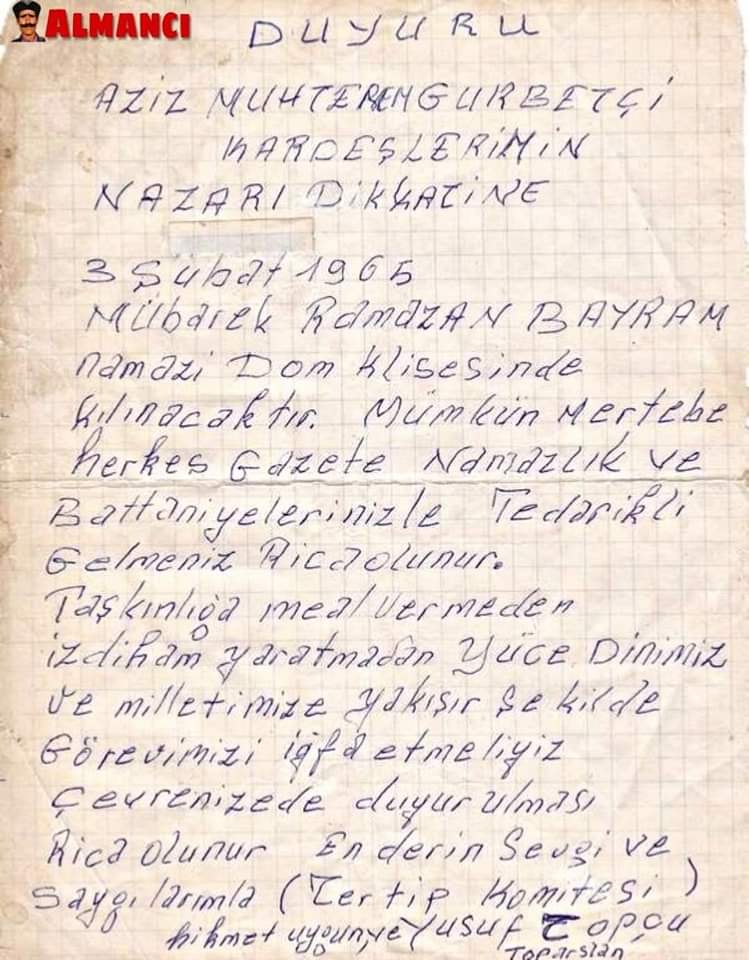 ALMANCI
DUYURU
AZİZ MUHTEREM GURBETÇİ
KARDEŞLERİMİN
NAZARI DİKKATİNE
3 Şubat 1965
Mübarek RamazAN BAYRAM
namazi Dom Klisesinde
kılınacaktır. Mümkün Mertebe
herkes Gazete Namazlık ve
Battaniyelerinizle Tedarikli
Gelmeniz Rica olunur.
Taşkınlığa meal vermeden
izdiham yaratmadan Yüce Dinimiz
ve milletimize yakışır Şekilde
Görevimizi iğfa etmeliyiz
Çevrenizede duyurulması
Rica olunur Enderin Sevgi ve
Saygılarımla (Tertip Komitesi)
hikmet uygun, ve Yusuf Topçu
Toparslan